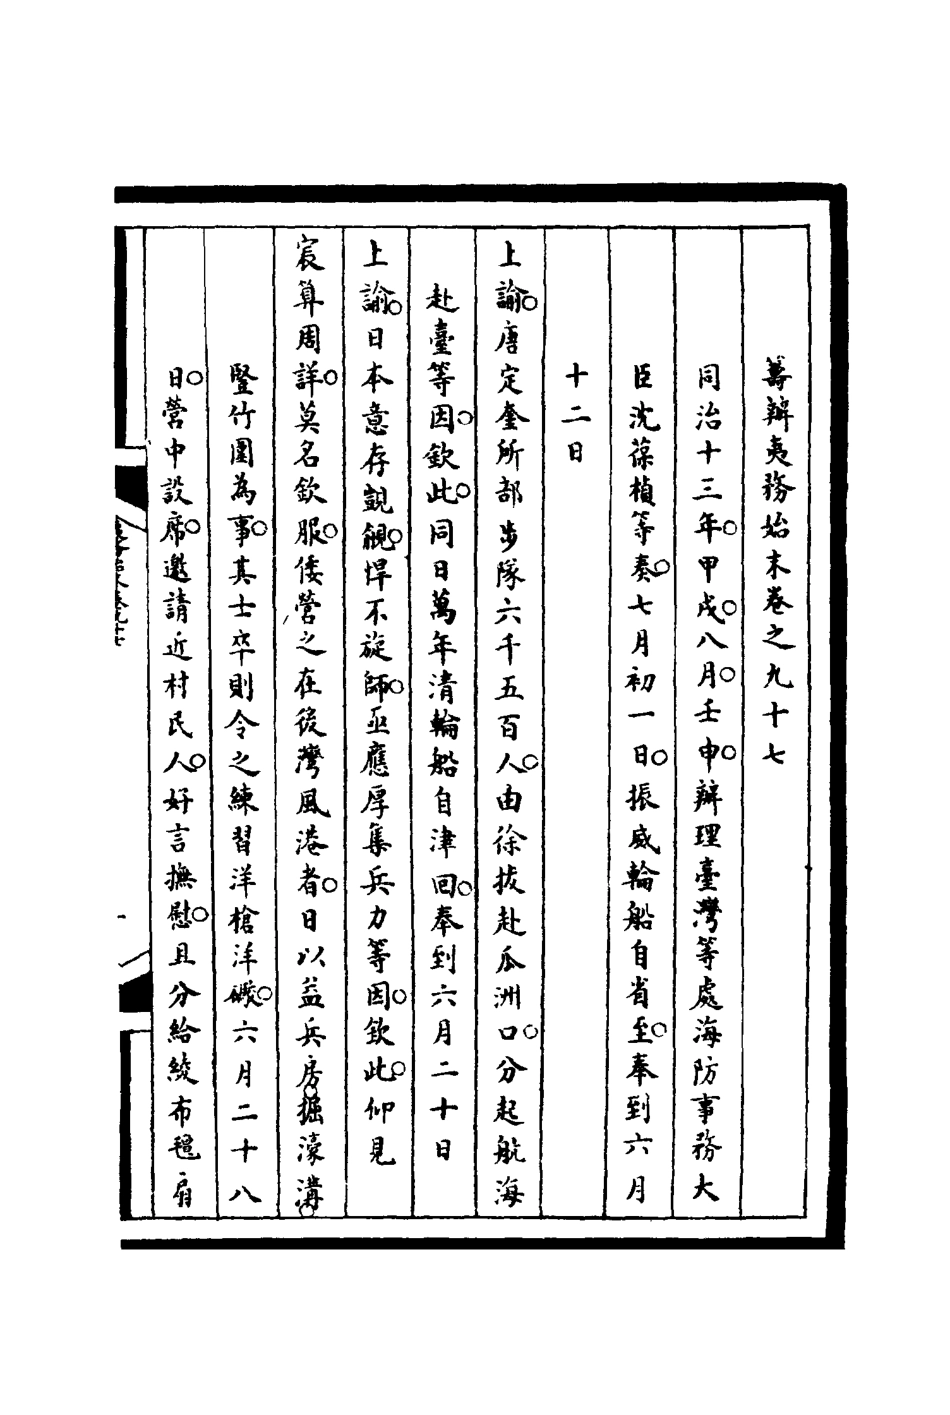 籌辦夷務始末卷之九十七
同治十三年。甲戌。八月。壬申。辦理臺灣等處海防事務大
臣沈葆楨等奏。七月初一日。振威輪船自省至。奉到六月
十二日
上諭。唐定奎所部步隊六千五百人。由徐拔赴瓜洲口。分起航海
赴臺等因。欽此。同日萬年清輪船自津回。奉到六月二十日
上諭。日本意存覬覦。悍不旋師。亟應厚集兵力等因。欽此。仰見
宸算周詳。莫名欽服。倭營之在後灣風港者。日以益兵房。掘濠溝。
豎竹圍為事。其士卒則令之練習洋槍洋礮。六月二十八
日。營中設席。邀請近村民人。好言撫慰。且分給綾布氊扇